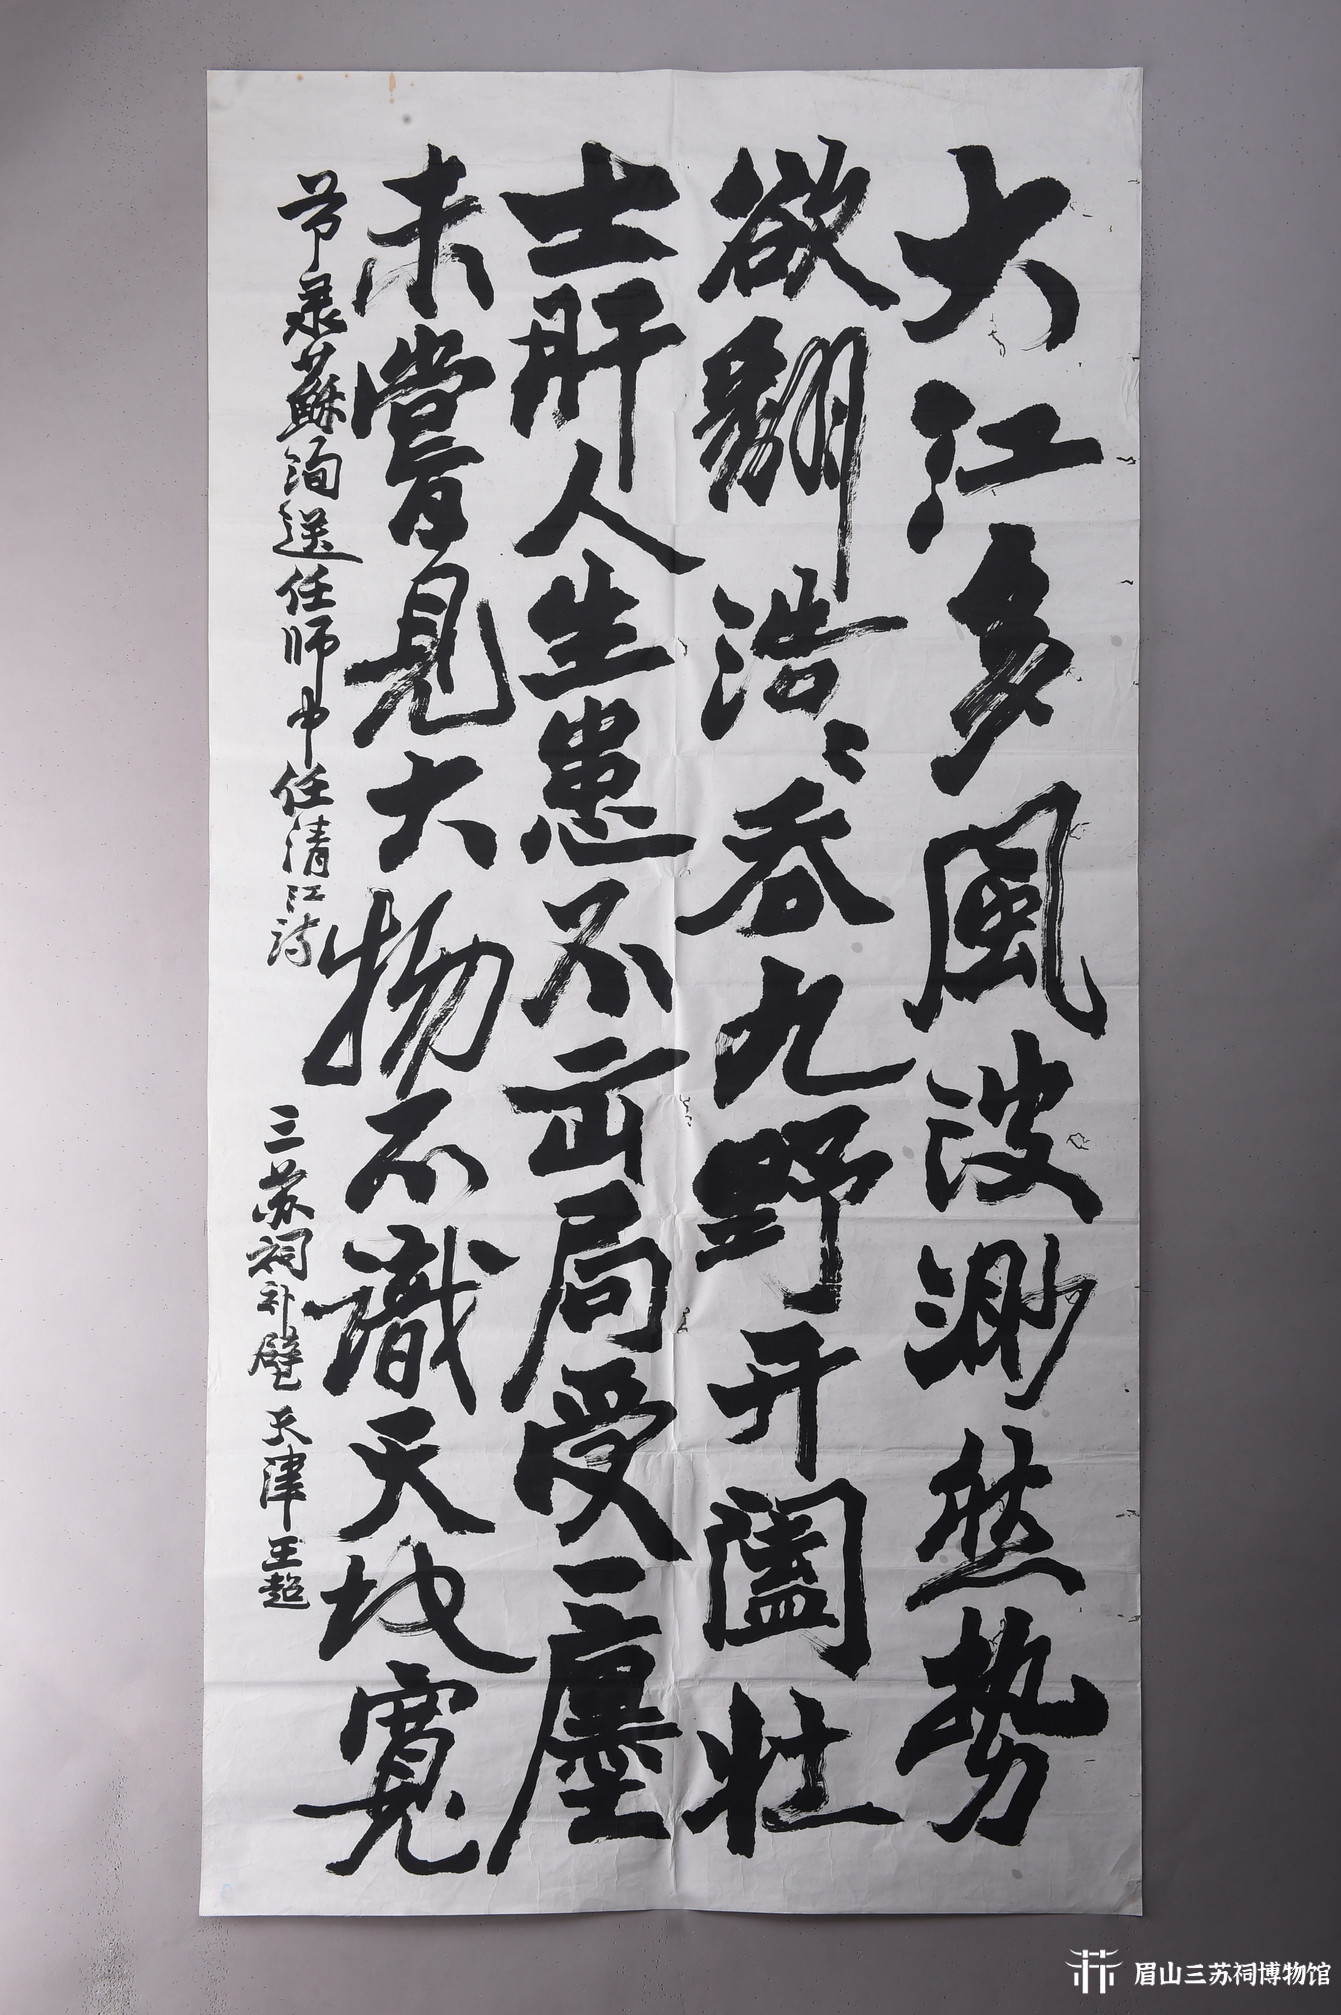 大江多風波渺然勢
欲翻浩〻吞九野开闔壮
士肝人生患不出局受一廛
未嘗見大物不識天地寬
节录蘇洵送任师中任清江诗
三苏祠补壁 天津王超
眉山三苏祠博物馆